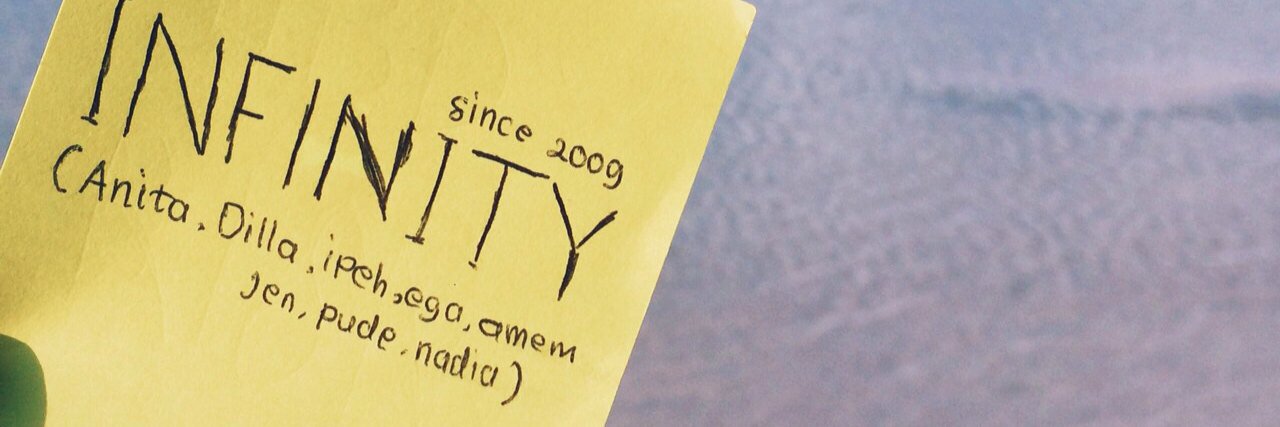 INFINITY
since 2009
(Anita, Dilla, ipeh, ega, amem
Jen, pude, nadia)